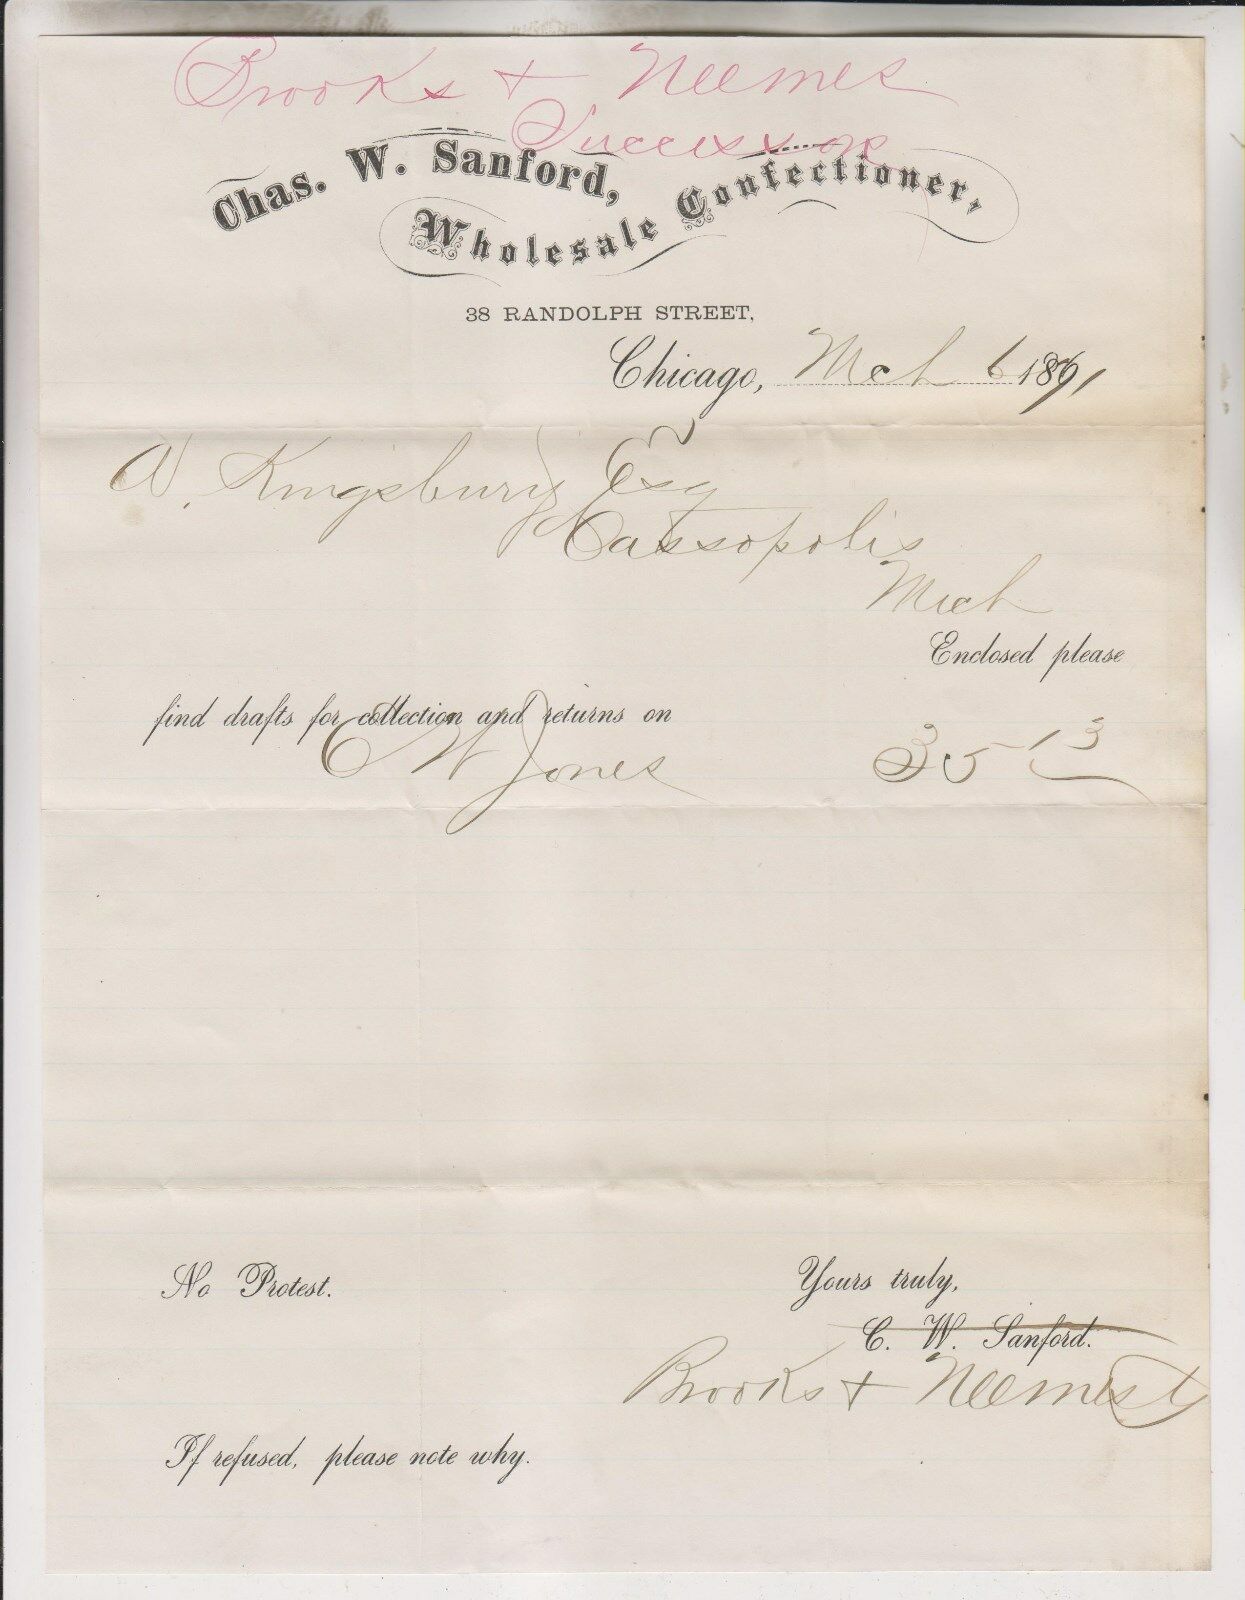 Brooks + Neemes
Successor
Chas. W. Sanford,
Wholesale Confectioner,
38 RANDOLPH STREET,
Chicago, Mch 6 1871
A. Kingsbury Esq
Cassopolis
Mich
Enclosed please
find drafts for collection and returns on
C W Jones 35 13
No Protest.
Yours truly,
C. W. Sanford.
Brooks +
If refused, please note why.